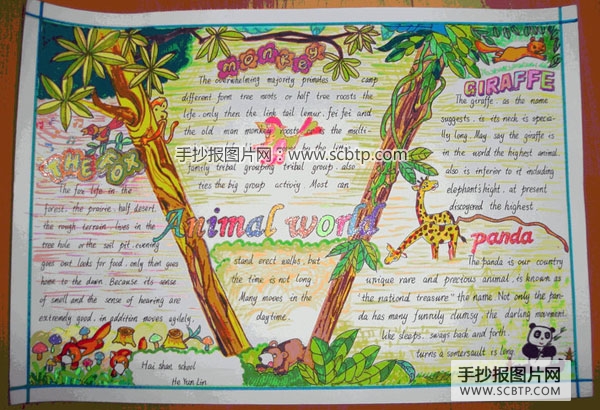 monkey
The overwhelming majority primates camp
different form tree nests or half tree roosts the
life. only then the link tail lemur. fei fei and
the old man monkey roosts the multi-
by the line
family tribal grouping tribal group. also
ties the big group activity Most can
stand erect walks, but
the time is not long
Many moves in the
daytime.
THE FOX
The fox life in the
forest. the prairie half desert.
the rough terrain lives in the
tree hole or the soil pit evening
goes out looks for food. only then goes
home to the dawn Because its sense
of smell and the sense of hearing are
extremely good. in addition moves agilely.
Animal world
GIRAFFE
The giraffe as the name
suggests. is its neck is specia-
lly long. May say the giraffe is
in the world the highest animal
also is inferior to it including
elephant's hight. at present
discovered the highest.
panda
The panda is our country
unique rare and precious animal. is known as
"the national treasure" the name Not only the pan-
da has many funnily clumsy the darling movement.
like sleeps. sways back and forth.
turns a somersault is long
Hai shan school
He Yun Lin
手抄报图片网:www.scbtp.com
手抄报图片网
WWW.SCBTP.COM